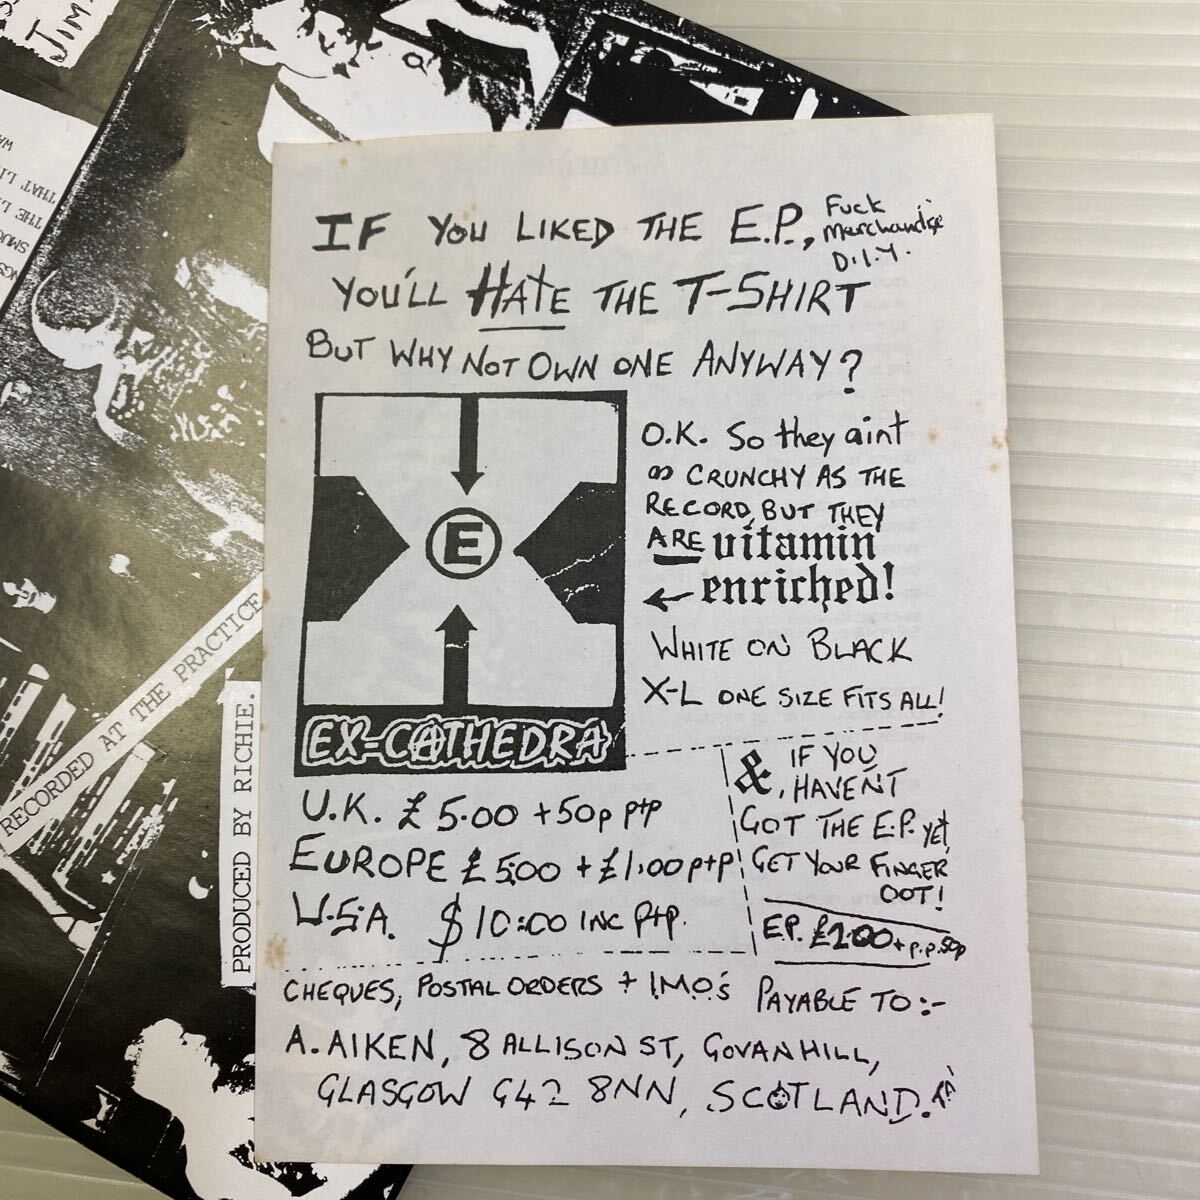 JIM
THAT LI
THE L
SMU
RECORDED AT THE PRACTICE
PRODUCED BY RICHIE.
IF YOU LIKED THE E.P.,
Fuck
Merchandise
D.I.Y.
YOU'LL HATE THE T-SHIRT
BUT WHY NOT OWN ONE ANYWAY?
E
EX-CATHEDRA
O.K. So they aint
as CRUNCHY AS THE
RECORD, BUT THEY
ARE vitamin
← enriched!
WHITE ON BLACK
X-L ONE SIZE FITS ALL!
U.K. £5.00 + 50p p+p
EUROPE £5.00 + £1.00 p+p
U.S.A. $10.00 INC P+P.
&, IF YOU
HAVEN'T
GOT THE E.P. YET,
GET YOUR FINGER
OOT!
E.P. £2.00 + p.p. 50p
CHEQUES, POSTAL ORDERS + I.M.O.'s PAYABLE TO:-
A. AIKEN, 8 ALLISON ST, GOVANHILL,
GLASGOW G42 8NN, SCOTLAND.